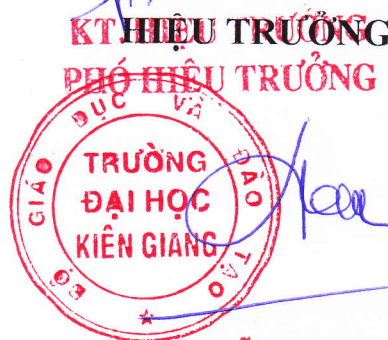 KT. HIỆU TRƯỞNG
HIỆU TRƯỞNG
PHÓ HIỆU TRƯỞNG
BỘ GIÁO DỤC VÀ ĐÀO TẠO
TRƯỜNG
ĐẠI HỌC
KIÊN GIANG